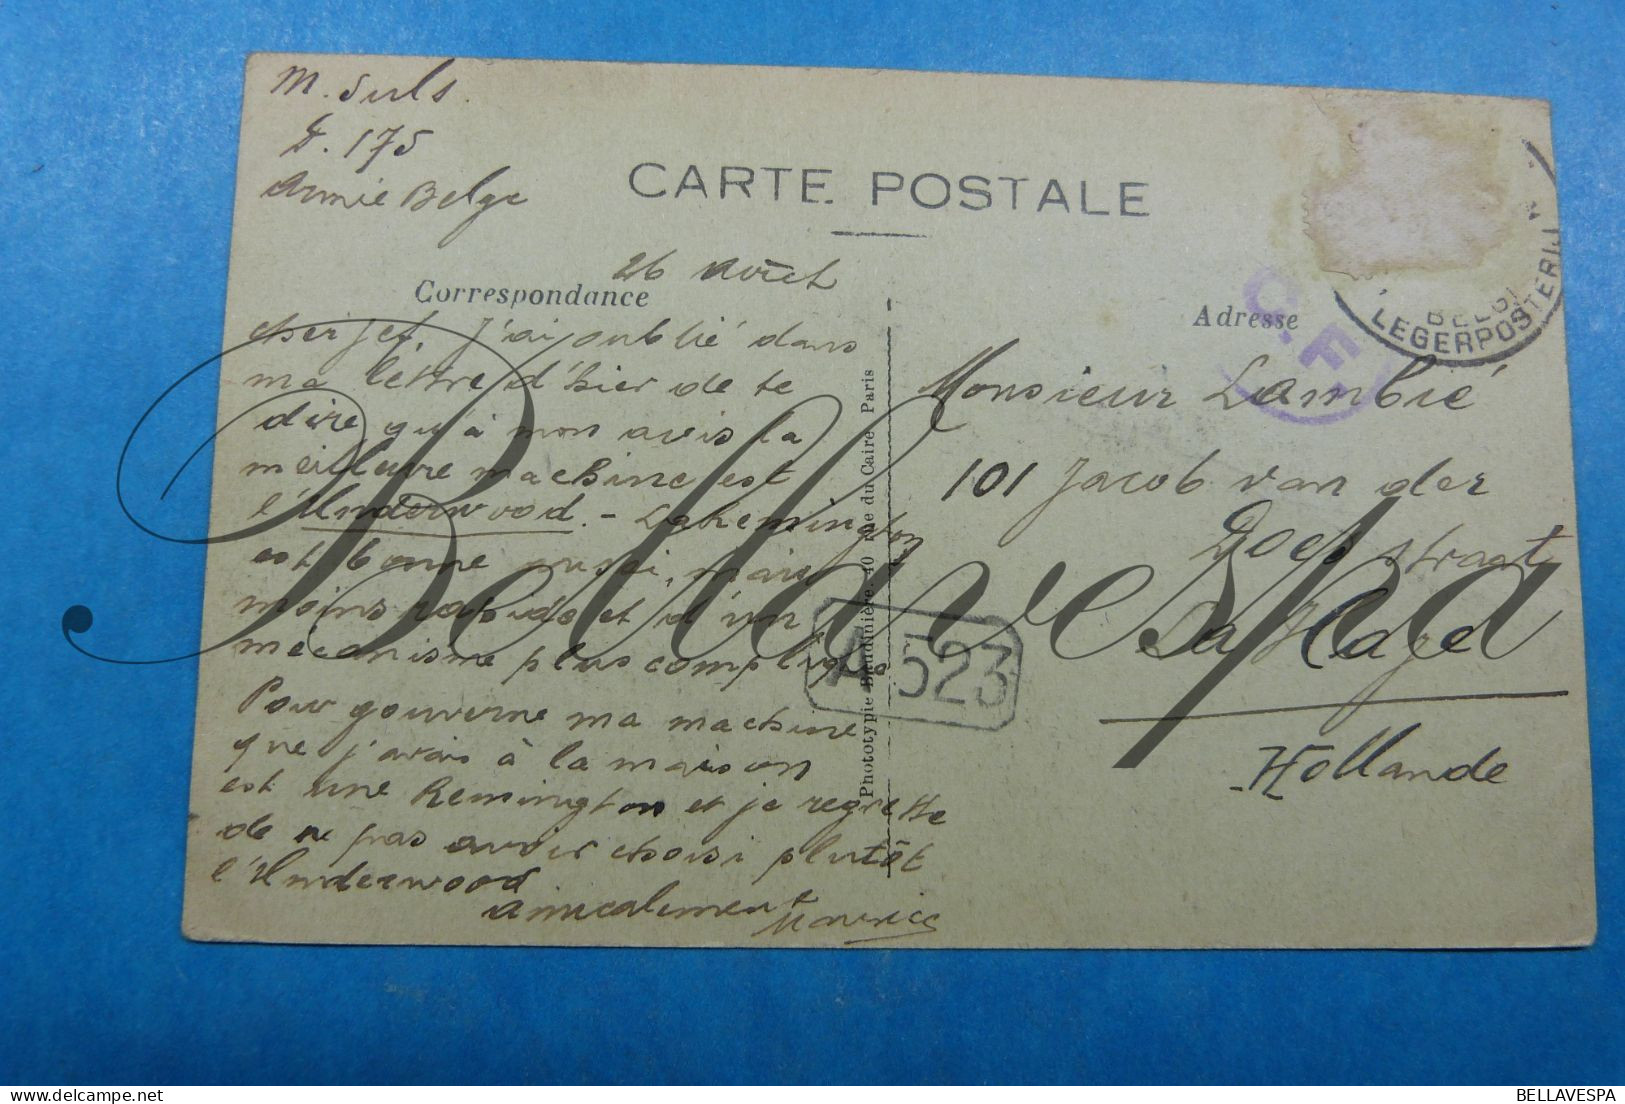 M. Suls
D. 175
Armée Belge
CARTE POSTALE
26 Avril
Correspondance
Adresse
cher Jef, J'ai oublié dans
ma lettre d'hier de te
dire qu'à mon avis la
meilleure machine est
l'Underwood. - La Remington
est bonne aussi, mais
moins rapide et d'un
mécanisme plus compliqué.
Pour gouverne ma machine
que j'avais à la maison
est une Remington et je regrette
de ne pas avoir choisi plutôt
l'Underwood
amicalement Maurice
Phototypie Baudinière 40 rue du Caire Paris
Monsieur Lambié
101 Jacob van der
Does straat
La Haye
Hollande
A. 523
C.F.
BELGI
LEGERPOSTERIJ
Bellavespa
BELLAVESPA